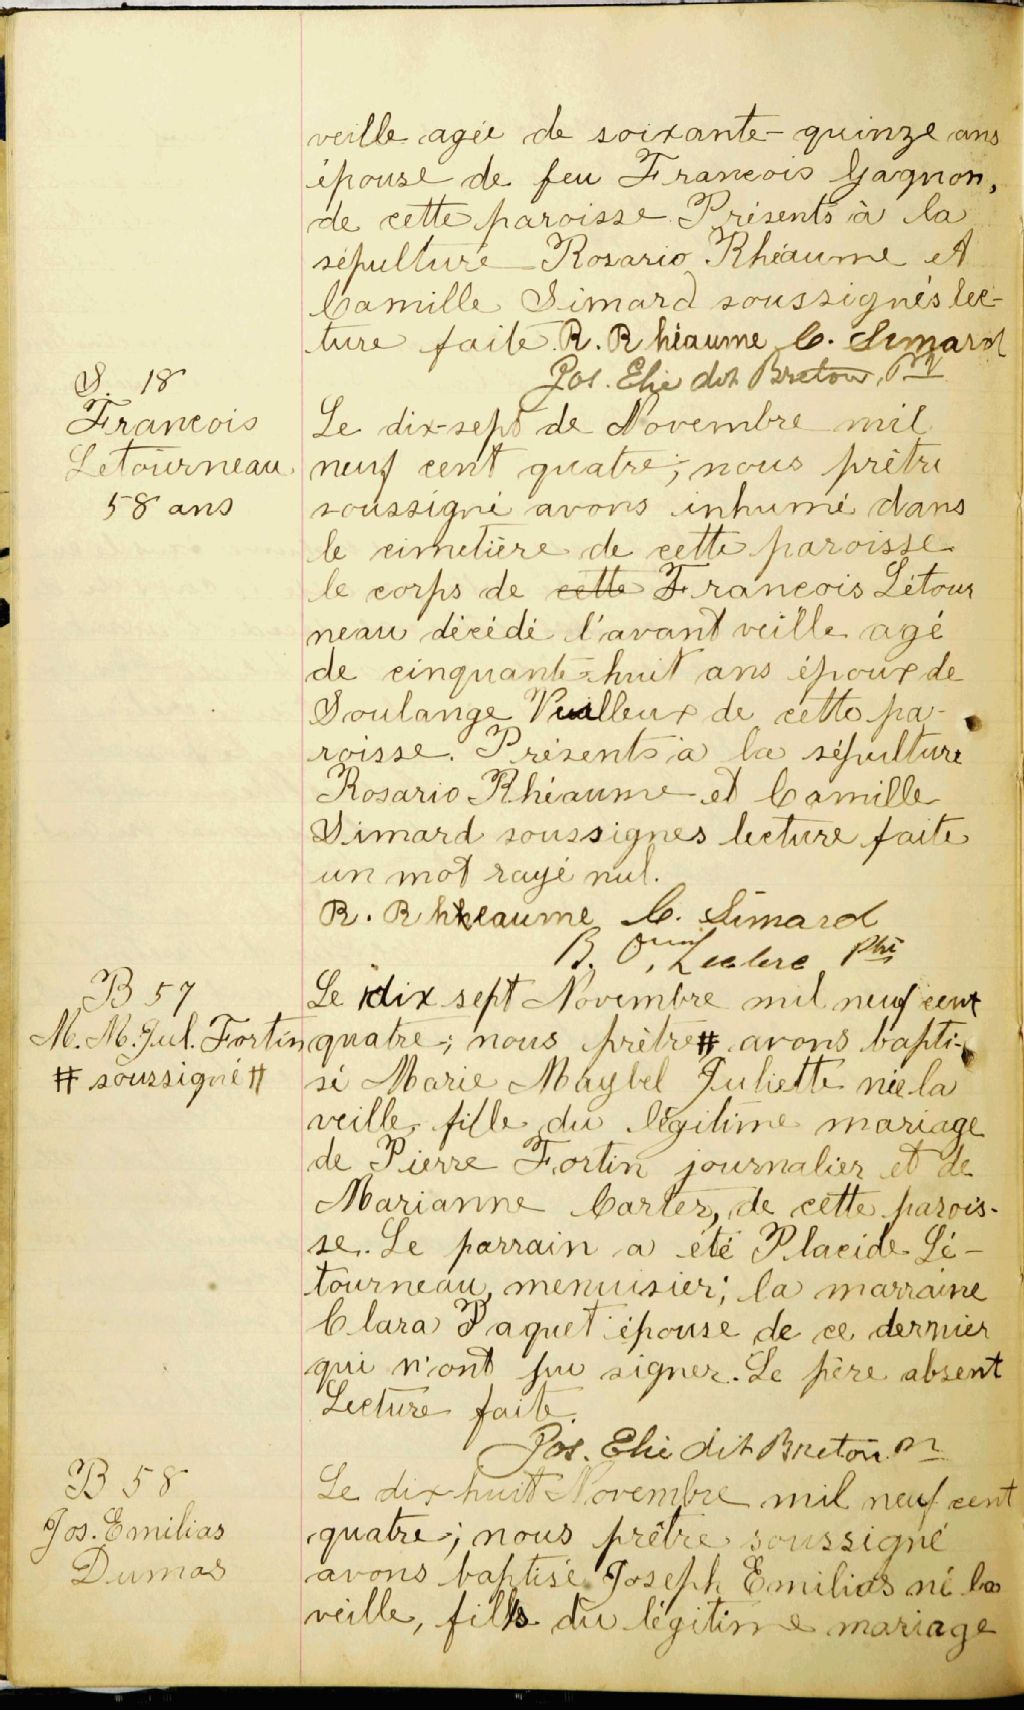 veille agée de soixante-quinze ans
épouse de feu Francois Gagnon,
de cette paroisse Présents à la
sépulture Rosario Rhéaume et
Camille Simard soussignés lec-
ture faite R. Rhéaume C. Simard
Jos. Elie dit Breton, Ptr
S. 18
Francois
Letourneau
58 ans
Le dix-sept de Novembre mil
neuf cent quatre; nous prêtre
soussigné avons inhumé dans
le cimetière de cette paroisse
le corps de cette Francois Létour
neau décédé l'avant veille agé
de cinquante-huit ans époux de
Soulange Veilleux de cette pa-
roisse. Présents à la sépulture
Rosario Rhéaume et Camille
Simard soussignes lecture faite
un mot rayé nul.
R. Rhéaume C. Simard
B. Leclerc Ptre
B 57
M. M. Jul. Fortin
# soussigné #
Le dix sept Novembre mil neuf cent
quatre; nous prêtre # avons bapti-
sé Marie Maybel Juliette née la
veille, fille du légitime mariage
de Pierre Fortin journalier et de
Marianne Carter, de cette parois-
se. Le parrain a été Placide Lé-
tourneau, menuisier; la marraine
Clara Paquet épouse de ce dernier
qui n'ont pu signer. Le père absent
Lecture faite.
Jos. Elie dit Breton
B 58
Jos. Emilias
Dumas
Le dix huit Novembre mil neuf cent
quatre; nous prêtre soussigné
avons baptisé Joseph Emilias né la
veille, fils du légitime mariage